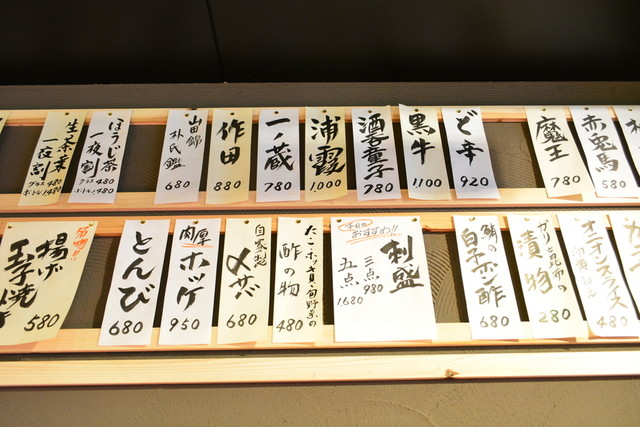 生茶葉
一夜割
グラス 480
ボトル 1480
ほうじ茶
一夜割
グラス 480
ボトル 1480
山田錦
朴氏鑑
680
作田
880
一ノ蔵
780
浦霞
1,000
酒呑童子
780
黒牛
1,100
ど辛
920
魔王
780
赤兎馬
580
名物!!
揚げ
玉子焼き
580
とんび
680
肉厚
ホッケ
950
自家製
〆サバ
680
たこ・ホッキ貝・旬野菜の
酢の物
480
本日の
おすすめ!!
刺盛
三点
980
五点
1680
鱈の
白子ポン酢
680
昆布の
漬物
280
オニオンスライス
480